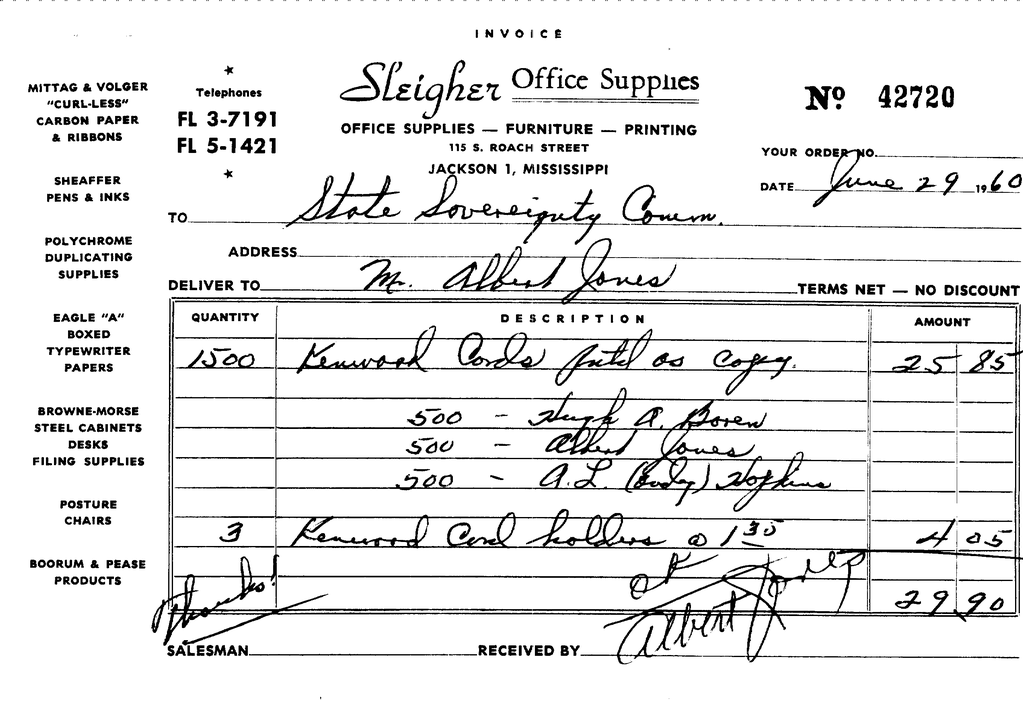 INVOICE
MITTAG & VOLGER
"CURL-LESS"
CARBON PAPER
& RIBBONS
SHEAFFER
PENS & INKS
POLYCHROME
DUPLICATING
SUPPLIES
EAGLE "A"
BOXED
TYPEWRITER
PAPERS
BROWNE-MORSE
STEEL CABINETS
DESKS
FILING SUPPLIES
POSTURE
CHAIRS
BOORUM & PEASE
PRODUCTS
Telephones
FL 3-7191
FL 5-1421
Sleigher Office Supplies
OFFICE SUPPLIES — FURNITURE — PRINTING
115 S. ROACH STREET
JACKSON 1, MISSISSIPPI
Nº 42720
YOUR ORDER NO.
DATE June 29 1960
TO State Sovereignty Comm.
ADDRESS
DELIVER TO Mr. Albert Jones TERMS NET — NO DISCOUNT
QUANTITY DESCRIPTION AMOUNT
1500 Kenwood Cards prtd as copy. 25 85
500 - Hugh A. Boren
500 - Albert Jones
500 - A.L. (Budy) Hopkins
3 Kenwood Card holders @ 1 35 4 05
29.90
Thanks!
OK
Albert Jones
SALESMAN RECEIVED BY